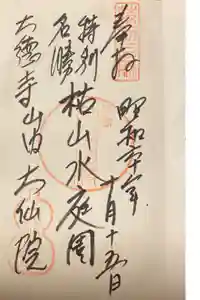 奉拝
昭和六十年
十月十五日
特別
名勝
枯山水庭園
大徳寺山内 大仙院